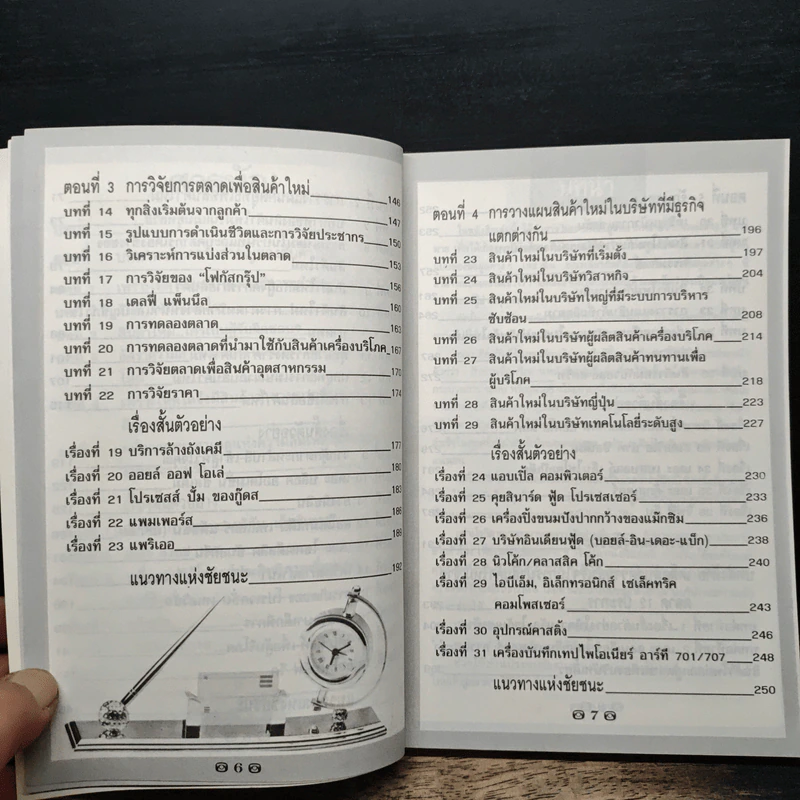 ตอนที่ 3 การวิจัยการตลาดเพื่อสินค้าใหม่ 146
บทที่ 14 ทุกสิ่งเริ่มต้นจากลูกค้า 147
บทที่ 15 รูปแบบการดำเนินชีวิตและการวิจัยประชากร 150
บทที่ 16 วิเคราะห์การแบ่งส่วนในตลาด 153
บทที่ 17 การวิจัยของ "โฟกัสกรุ๊ป" 156
บทที่ 18 เดลฟี่ แพ็นนีล 160
บทที่ 19 การทดลองตลาด 163
บทที่ 20 การทดลองตลาดที่นำมาใช้กับสินค้าเครื่องบริโภค 167
บทที่ 21 การวิจัยตลาดเพื่อสินค้าอุตสาหกรรม 170
บทที่ 22 การวิจัยราคา 174
เรื่องสั้นตัวอย่าง
เรื่องที่ 19 บริการล้างถังเคมี 177
เรื่องที่ 20 ออยล์ ออฟ โอเล่ 180
เรื่องที่ 21 โปรเซสส์ ปั้ม ของกู๊ดส 183
เรื่องที่ 22 แพมเพอร์ส 186
เรื่องที่ 23 แพริเออ 189
แนวทางแห่งชัยชนะ 192
6
ตอนที่ 4 การวางแผนสินค้าใหม่ในบริษัทที่มีธุรกิจ
แตกต่างกัน 196
บทที่ 23 สินค้าใหม่ในบริษัทที่เริ่มตั้ง 197
บทที่ 24 สินค้าใหม่ในบริษัทวิสาหกิจ 204
บทที่ 25 สินค้าใหม่ในบริษัทใหญ่ที่มีระบบการบริหาร
ซับซ้อน 208
บทที่ 26 สินค้าใหม่ในบริษัทผู้ผลิตสินค้าเครื่องบริโภค 214
บทที่ 27 สินค้าใหม่ในบริษัทผู้ผลิตสินค้าทนทานเพื่อ
ผู้บริโภค 218
บทที่ 28 สินค้าใหม่ในบริษัทญี่ปุ่น 223
บทที่ 29 สินค้าใหม่ในบริษัทเทคโนโลยี่ระดับสูง 227
เรื่องสั้นตัวอย่าง
เรื่องที่ 24 แอบเปิ้ล คอมพิวเตอร์ 230
เรื่องที่ 25 คุยสินาร์ด ฟู้ด โปรเซสเซอร์ 233
เรื่องที่ 26 เครื่องปิ้งขนมปังปากกว้างของแม๊กซิม 236
เรื่องที่ 27 บริษัทอินเดียนฟู้ด (บอยล์-อิน-เตอะ-แบ็ก) 238
เรื่องที่ 28 นิวโค้ก/คลาสสิค โค้ก 240
เรื่องที่ 29 ไอบีเอ็ม, อิเล็กทรอนิกส์ เซเล็คทริค
คอมโพสเซอร์ 243
เรื่องที่ 30 อุปกรณ์คาสติ้ง 246
เรื่องที่ 31 เครื่องบันทึกเทปไพโอเนียร์ อาร์ที 701/707 248
แนวทางแห่งชัยชนะ 250
7